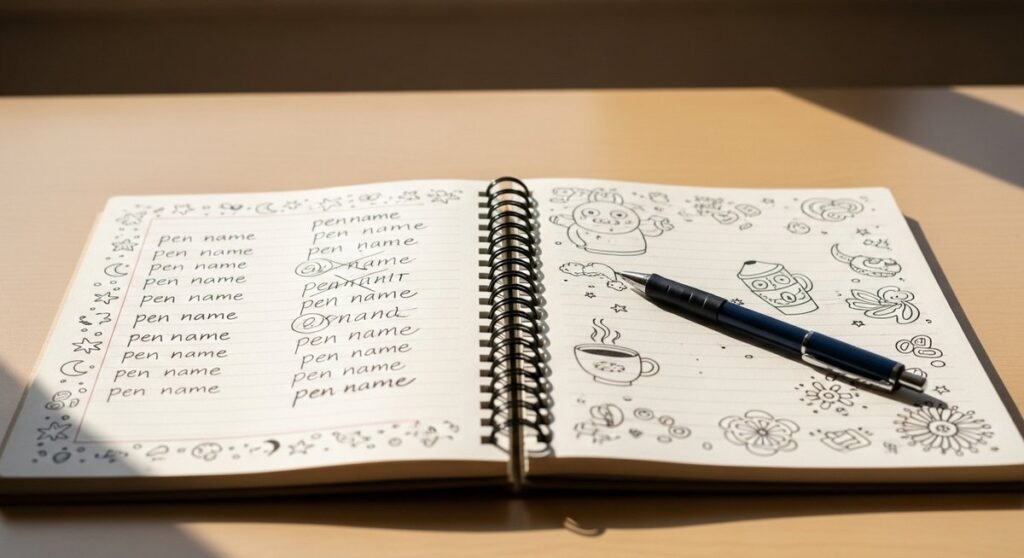 pen name
pen name
pen name
pen name
pen name
pen name
pen name
pen name
pen name
pen name
pen name
pen name
pen name
name
pen name
pen name
pen name
pen name
pen name